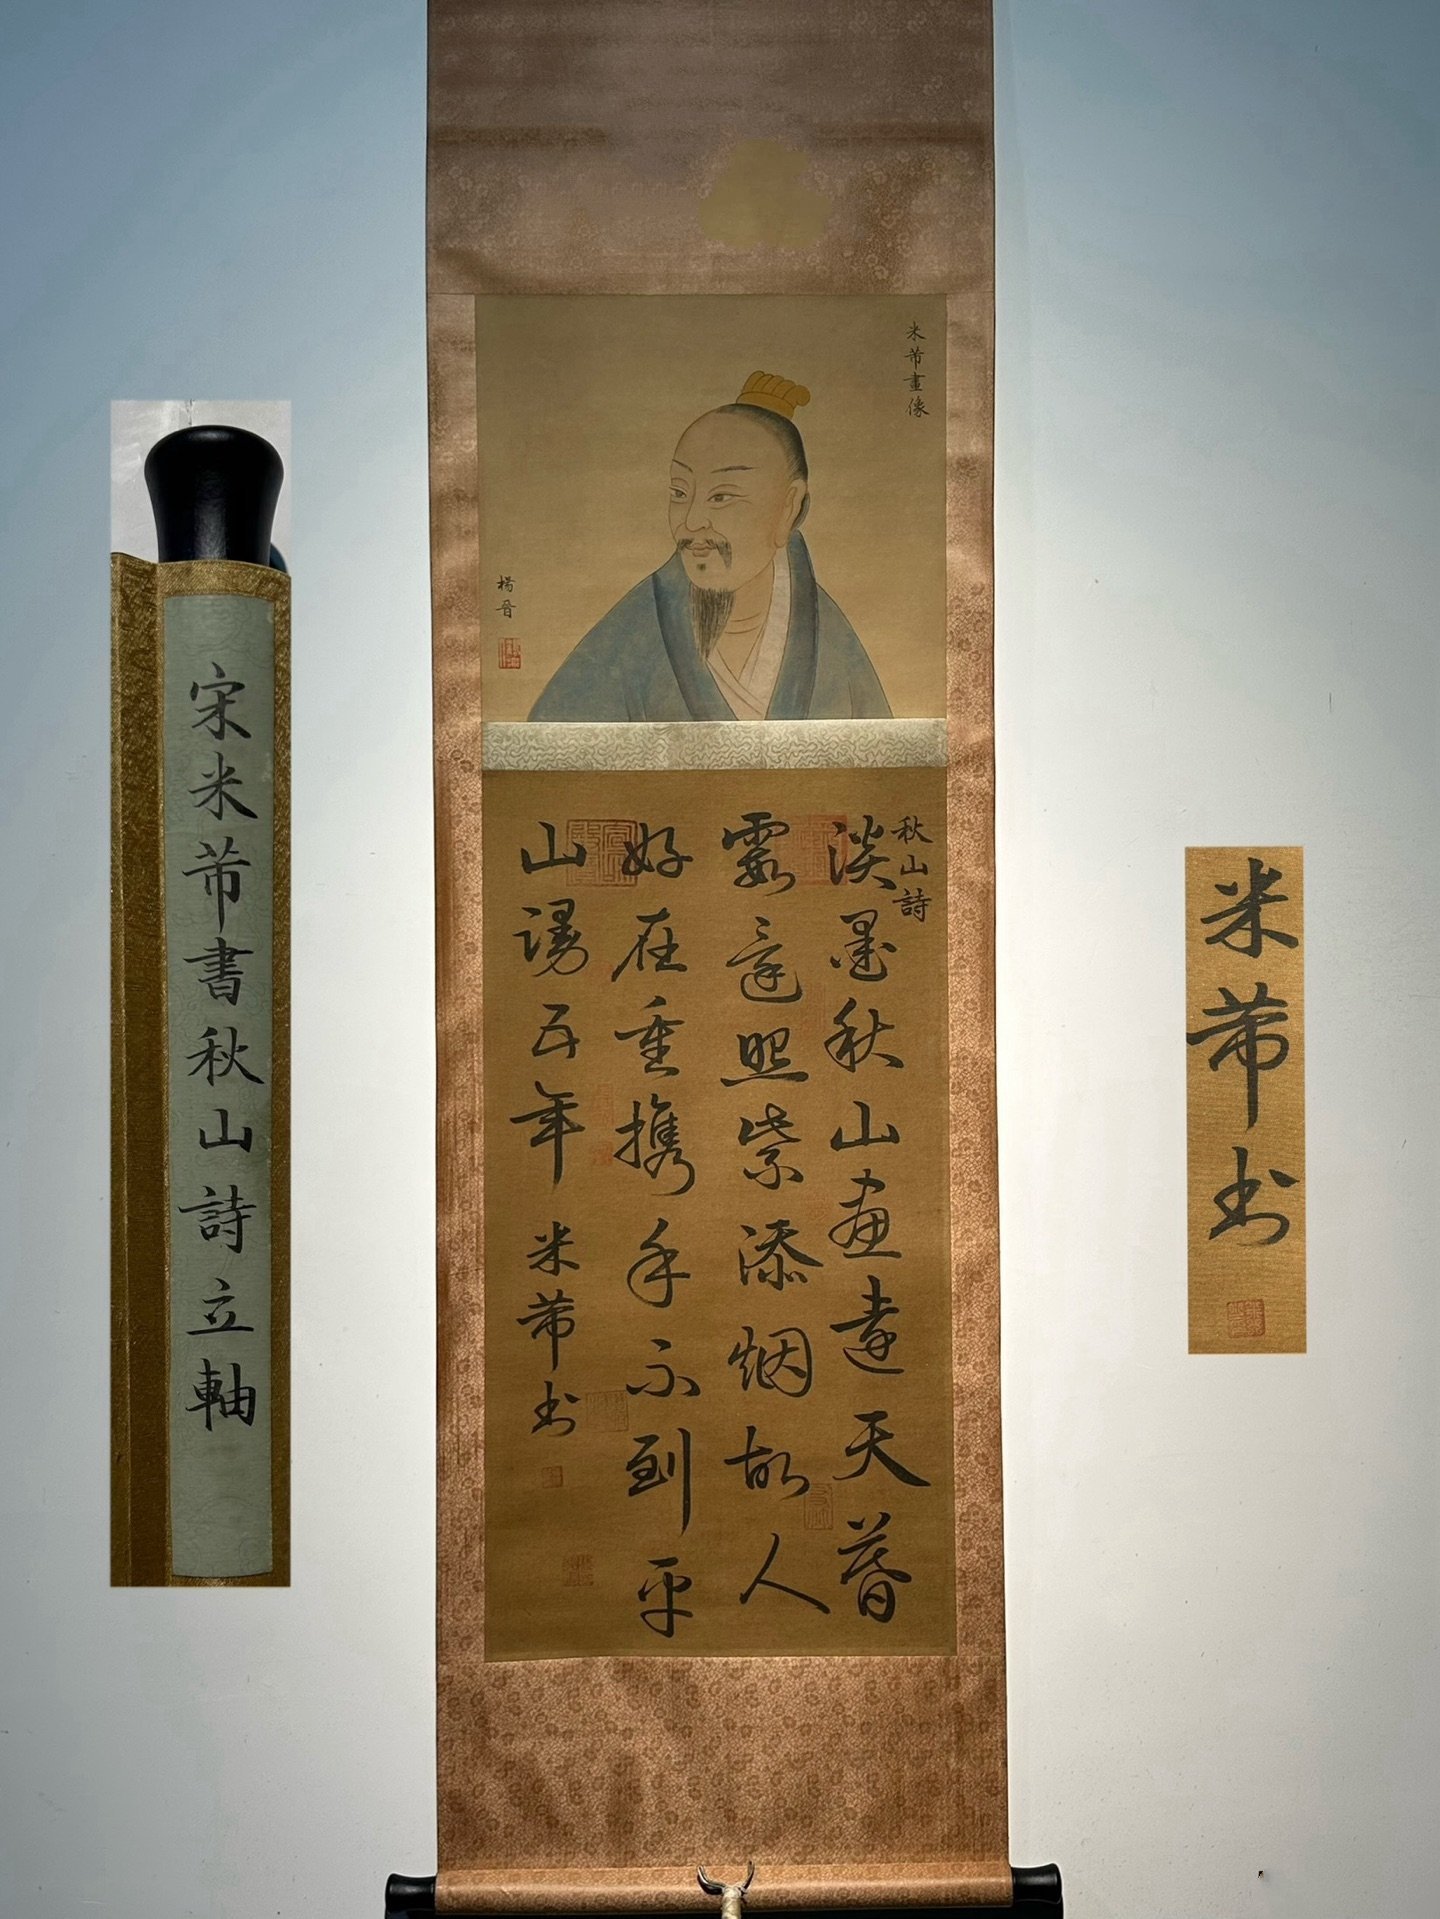 宋米芾書秋山詩立軸
米芾畫像
楊晉
秋山詩
淡墨秋山画遠天暮
霞還照紫添烟故人
好在重携手不到平
山謾五年 米芾书
米芾书